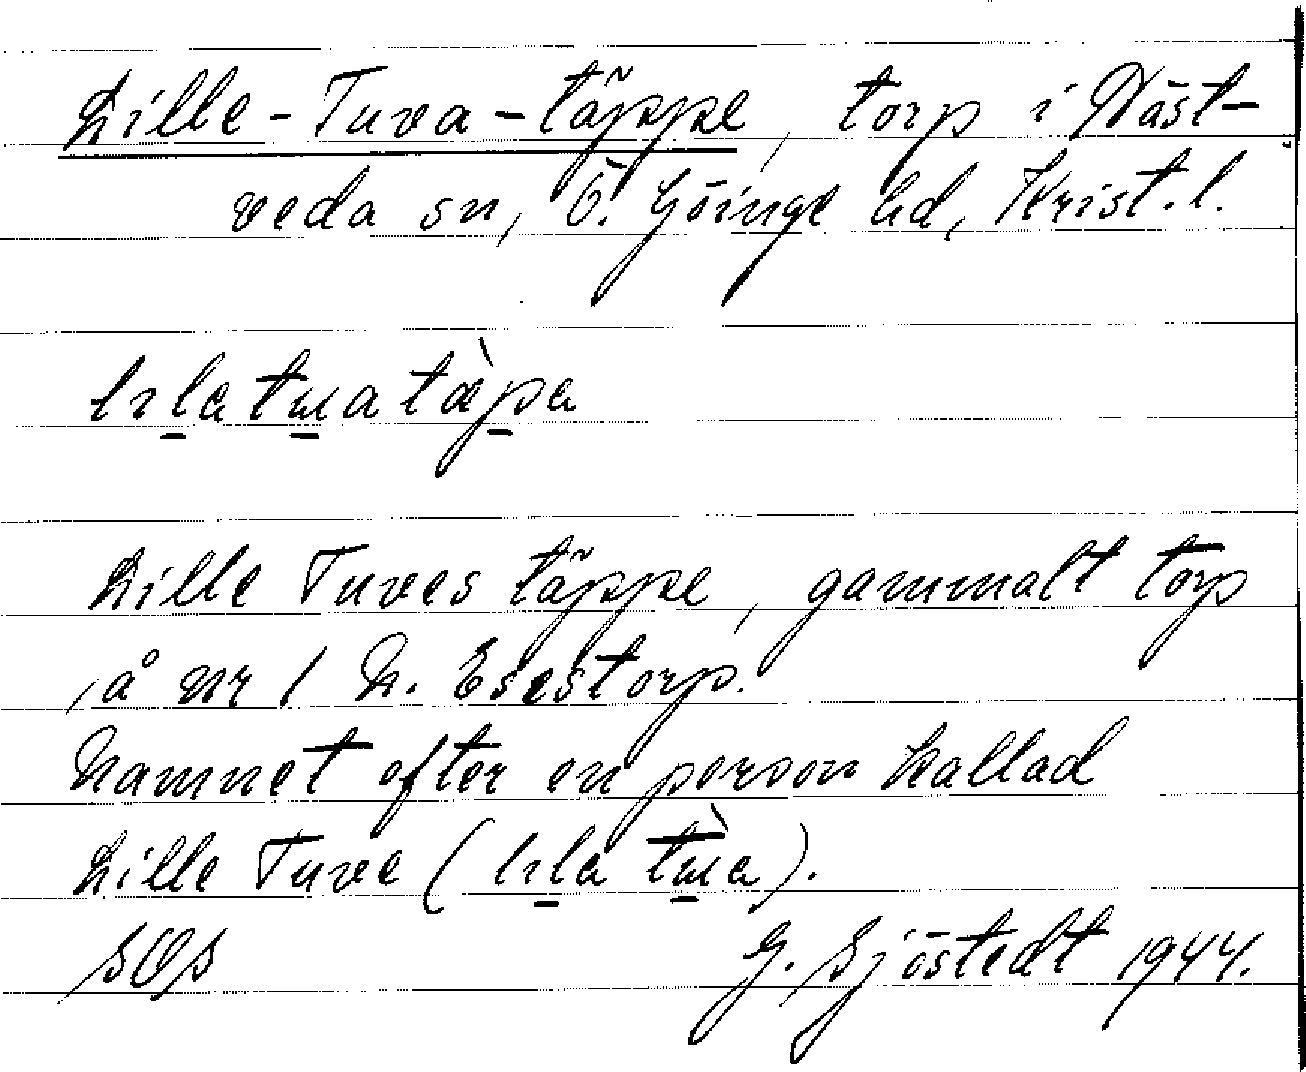 Lille-Tuva-täppe, torp i Näst-
veda sn, Ö. Göinge hd, Krist. l.
Lille Tuves täppe, gammalt torp
å nr 1 N. Esestorp.
Namnet efter en person kallad
Lille Tuve
G. Sjöstedt 1944.